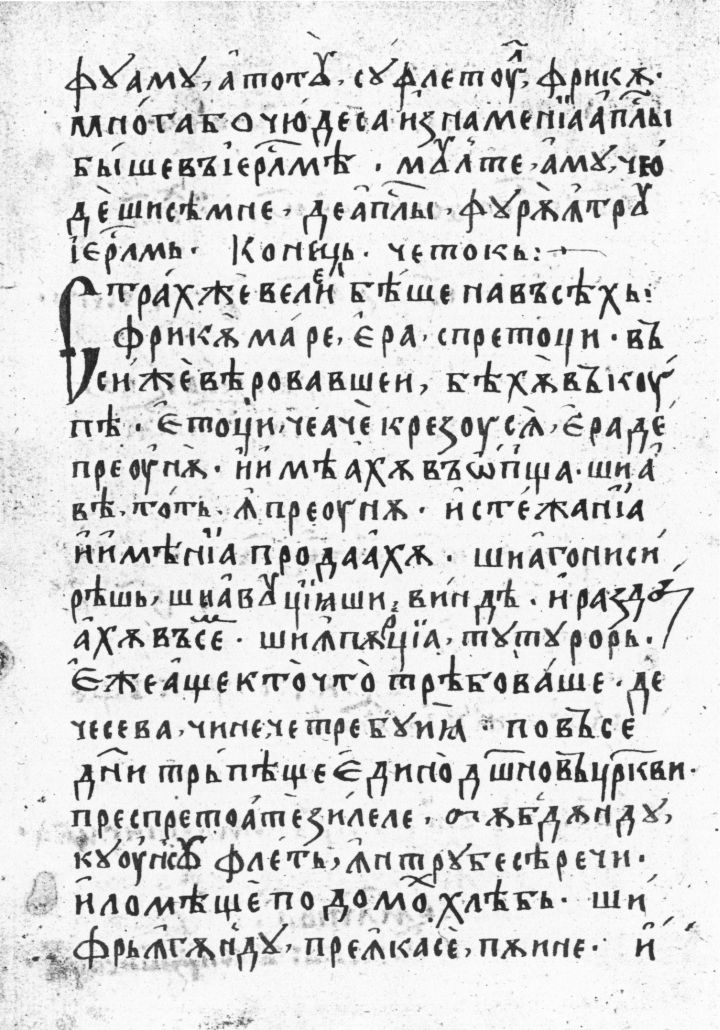 фꙋамꙋ, атотꙋ, сꙋфлетоуⷧ, фрикѫ·
мно́габочю́десаизнаменїаап҃лы
бы́шевъіер҃лмѣ · мꙋⷧте, амꙋ, чю
дѐшисѣмне, деап҃лы, фꙋрѫꙟтрꙋ
іер҃лмь· Коне́ць· четокь:·
Стра́хжѐвелїиⷩ бѣшенавъсѣхь:
фрикѫма́ре, ера, спретоци · въ
сиⷤжѐвѣровавшеи, бѣхѫвъкоу
пѣ · етоци, чеачѐкрезоусѫ, ераде
преоунѫ· иимѣахѫвъѡпща· шиа
вѣ, тоть, ꙟпреоунѫ · истежанїа
иимѣнїапродаахѫ · шиагониси
рѣшь, шиавꙋцїиѧши, виндѣ · иразⷣо
ахѫвъсеⷨ· шиꙟпѫрцїа, тꙋтꙋрорь·
Ежеащектѐчто̀трѣбова́ше· де
чесева, чинечетребꙋиїѧ · повъсѐ
дн҃итрьпѣщеединод҃шновъцр҃кви·
преспретоатезилеле, ѿѫбдѫндꙋ,
кꙋоунсꙋфлеть, ꙟнтрꙋбесѣречи·
иломѣщепо домоⷯ, хлѣбь· ши
фрьꙟгѫндꙋ, преꙟкасѐ, пѫине· и